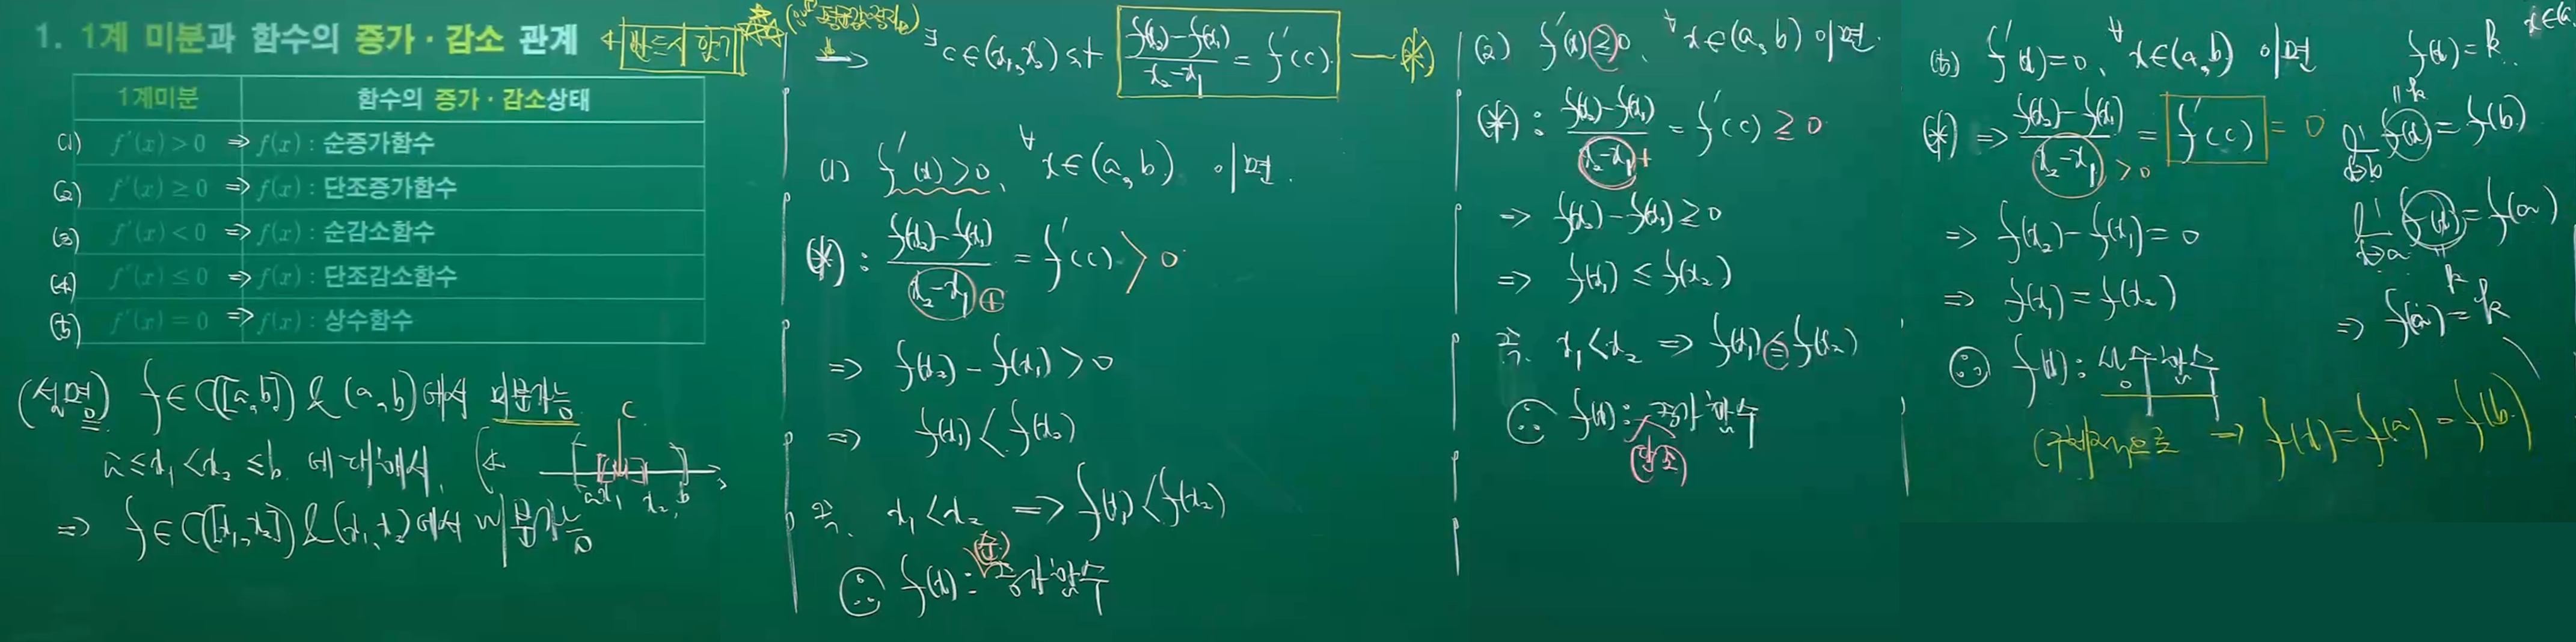 1. 1계 미분과 함수의 증가·감소 관계
반드시 암기
1계미분 함수의 증가·감소상태
(1) f'(x) > 0 ⇒ f(x) : 순증가함수
(2) f'(x) ≥ 0 ⇒ f(x) : 단조증가함수
(3) f'(x) < 0 ⇒ f(x) : 순감소함수
(4) f'(x) ≤ 0 ⇒ f(x) : 단조감소함수
(5) f'(x) = 0 ⇒ f(x) : 상수함수
(설명) f∈C([a,b]) & (a,b)에서 미분가능
a ≤ x₁ < x₂ ≤ b 에 대해서,
c
a x₁ x₂ b
⇒ f∈C([x₁,x₂]) & (x₁,x₂)에서 미분가능
⇒ ∃c∈(x₁,x₂) s.t (f(x₂)-f(x₁))/(x₂-x₁) = f'(c) — (*)
(1) f'(x)>0, ∀x∈(a,b) 이면.
(*) : (f(x₂)-f(x₁))/(x₂-x₁) ⊕ = f'(c) > 0
⇒ f(x₂) - f(x₁) > 0
⇒ f(x₁) < f(x₂)
즉. x₁ < x₂ ⇒ f(x₁) < f(x₂)
∴ f(x) : 순증가함수
(2) f'(x) ≥ 0, ∀x∈(a,b) 이면.
(*) : (f(x₂)-f(x₁))/(x₂-x₁) + = f'(c) ≥ 0
⇒ f(x₂) - f(x₁) ≥ 0
⇒ f(x₁) ≤ f(x₂)
즉. x₁ < x₂ ⇒ f(x₁) ≤ f(x₂)
∴ f(x) : 단조증가함수
(5) f'(x)=0, ∀x∈(a,b) 이면
(*) ⇒ (f(x₂)-f(x₁))/(x₂-x₁) > 0 = f'(c) = 0
⇒ f(x₂) - f(x₁) = 0
⇒ f(x₁) = f(x₂)
∴ f(x) : 상수함수
⇒ f(x) = f(a) = f(b)
f(x) = k.
x∈(a
= k
lim x→b f(x) = f(b)
lim x→a f(x) = f(a)
= k
⇒ f(a) = k